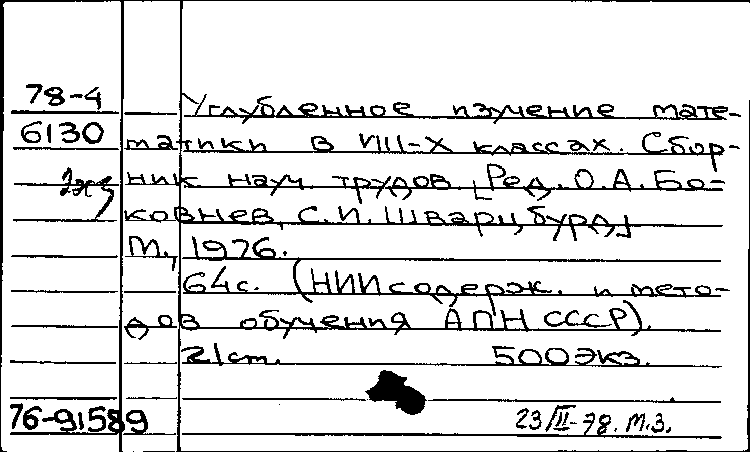 78-4 Углубленное изучение мате-
6130 матики в VIII-X классах. Сбор-
2жз ник науч. трудов. [Ред. О.А. Бо-
ковнев, С.И. Шварцбурд]
М., 1976.
64с. (НИИ содерж. и мето-
дов обучения АПН СССР).
21 cm. 500 экз.
76-91589 23/II-78. М.З.